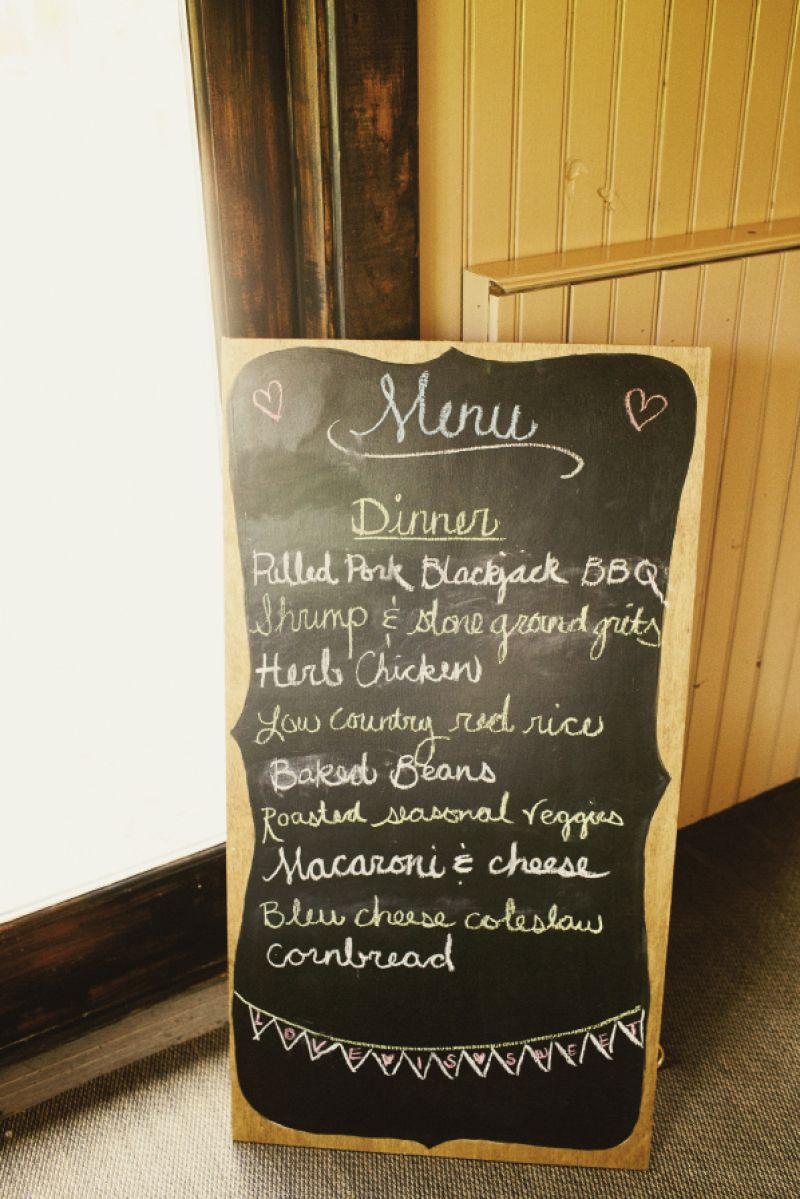 Menu
Dinner
Pulled Pork Blackjack BBQ
Shrump & stone ground grits
Herb Chicken
Low country red rice
Baked Beans
Roasted seasonal Veggies
Macaroni & cheese
Bleu cheese coleslaw
Cornbread
LOVE♥IS♥SWEET